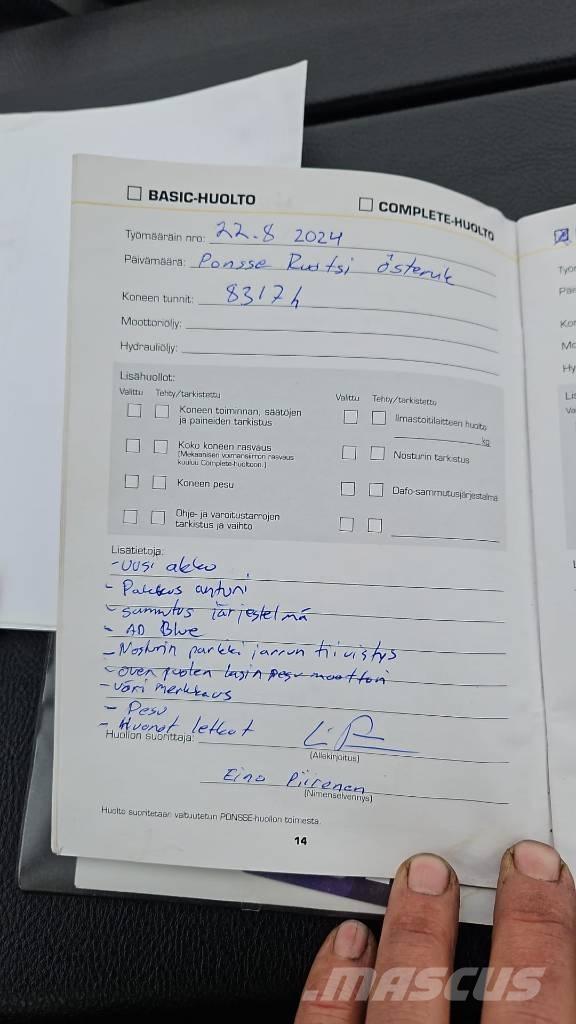 BASIC-HUOLTO
COMPLETE-HUOLTO
Työmääräin nro: 22.8 2024
Päivämäärä: Ponsse Ruotsi Österuk
Koneen tunnit: 8317h
Moottoriöljy:
Hydrauliöljy:
Lisähuollot:
Valittu Tehty/tarkistettu
Koneen toiminnan, säätöjen
ja paineiden tarkistus
Koko koneen rasvaus
(Mekaanisen voimansiirron rasvaus
kuuluu Complete-huoltoon.)
Koneen pesu
Ohje- ja varoitustarrojen
tarkistus ja vaihto
Valittu Tehty/tarkistettu
Ilmastointilaitteen huolto
kg
Nosturin tarkistus
Dafo-sammutusjärjestelmä
Lisätietoja:
- uusi akku
- Pakkas anturi
- sammutus järjestelmä
- AD Blue
- Nosturin parkki jarrun tiivistys
- oven puolen lasin pesu moottori
- väri merkkaus
- Pesu
- Huonot letkut
Huollon suorittaja:
(Allekirjoitus)
Eino Piirenen
(Nimenselvennys)
Huolto suoritetaan valtuutetun PONSSE-huollon toimesta.
14
Mascus